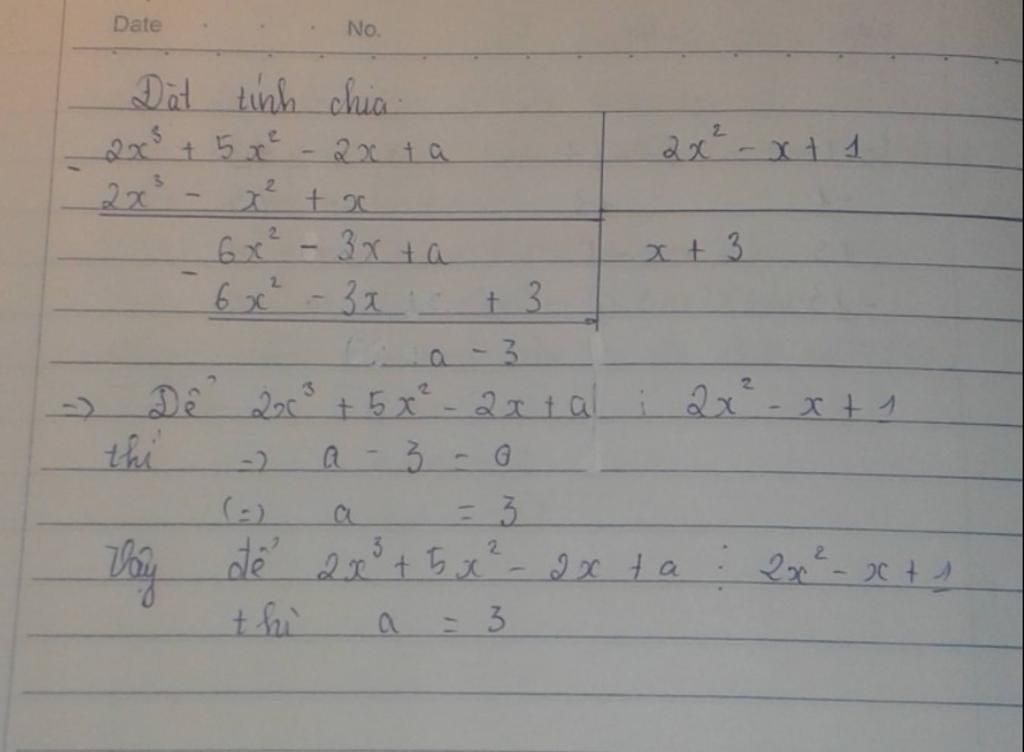 Date . . . No.
Đặt tính chia.
- 2x³ + 5x² - 2x + a | 2x² - x + 1
2x³ - x² + x
6x² - 3x + a | x + 3
- 6x² - 3x + 3
a - 3
=> Để 2x³ + 5x² - 2x + a ⋮ 2x² - x + 1
thì => a - 3 = 0
(=) a = 3
Vậy để 2x³ + 5x² - 2x + a ⋮ 2x² - x + 1
thì a = 3